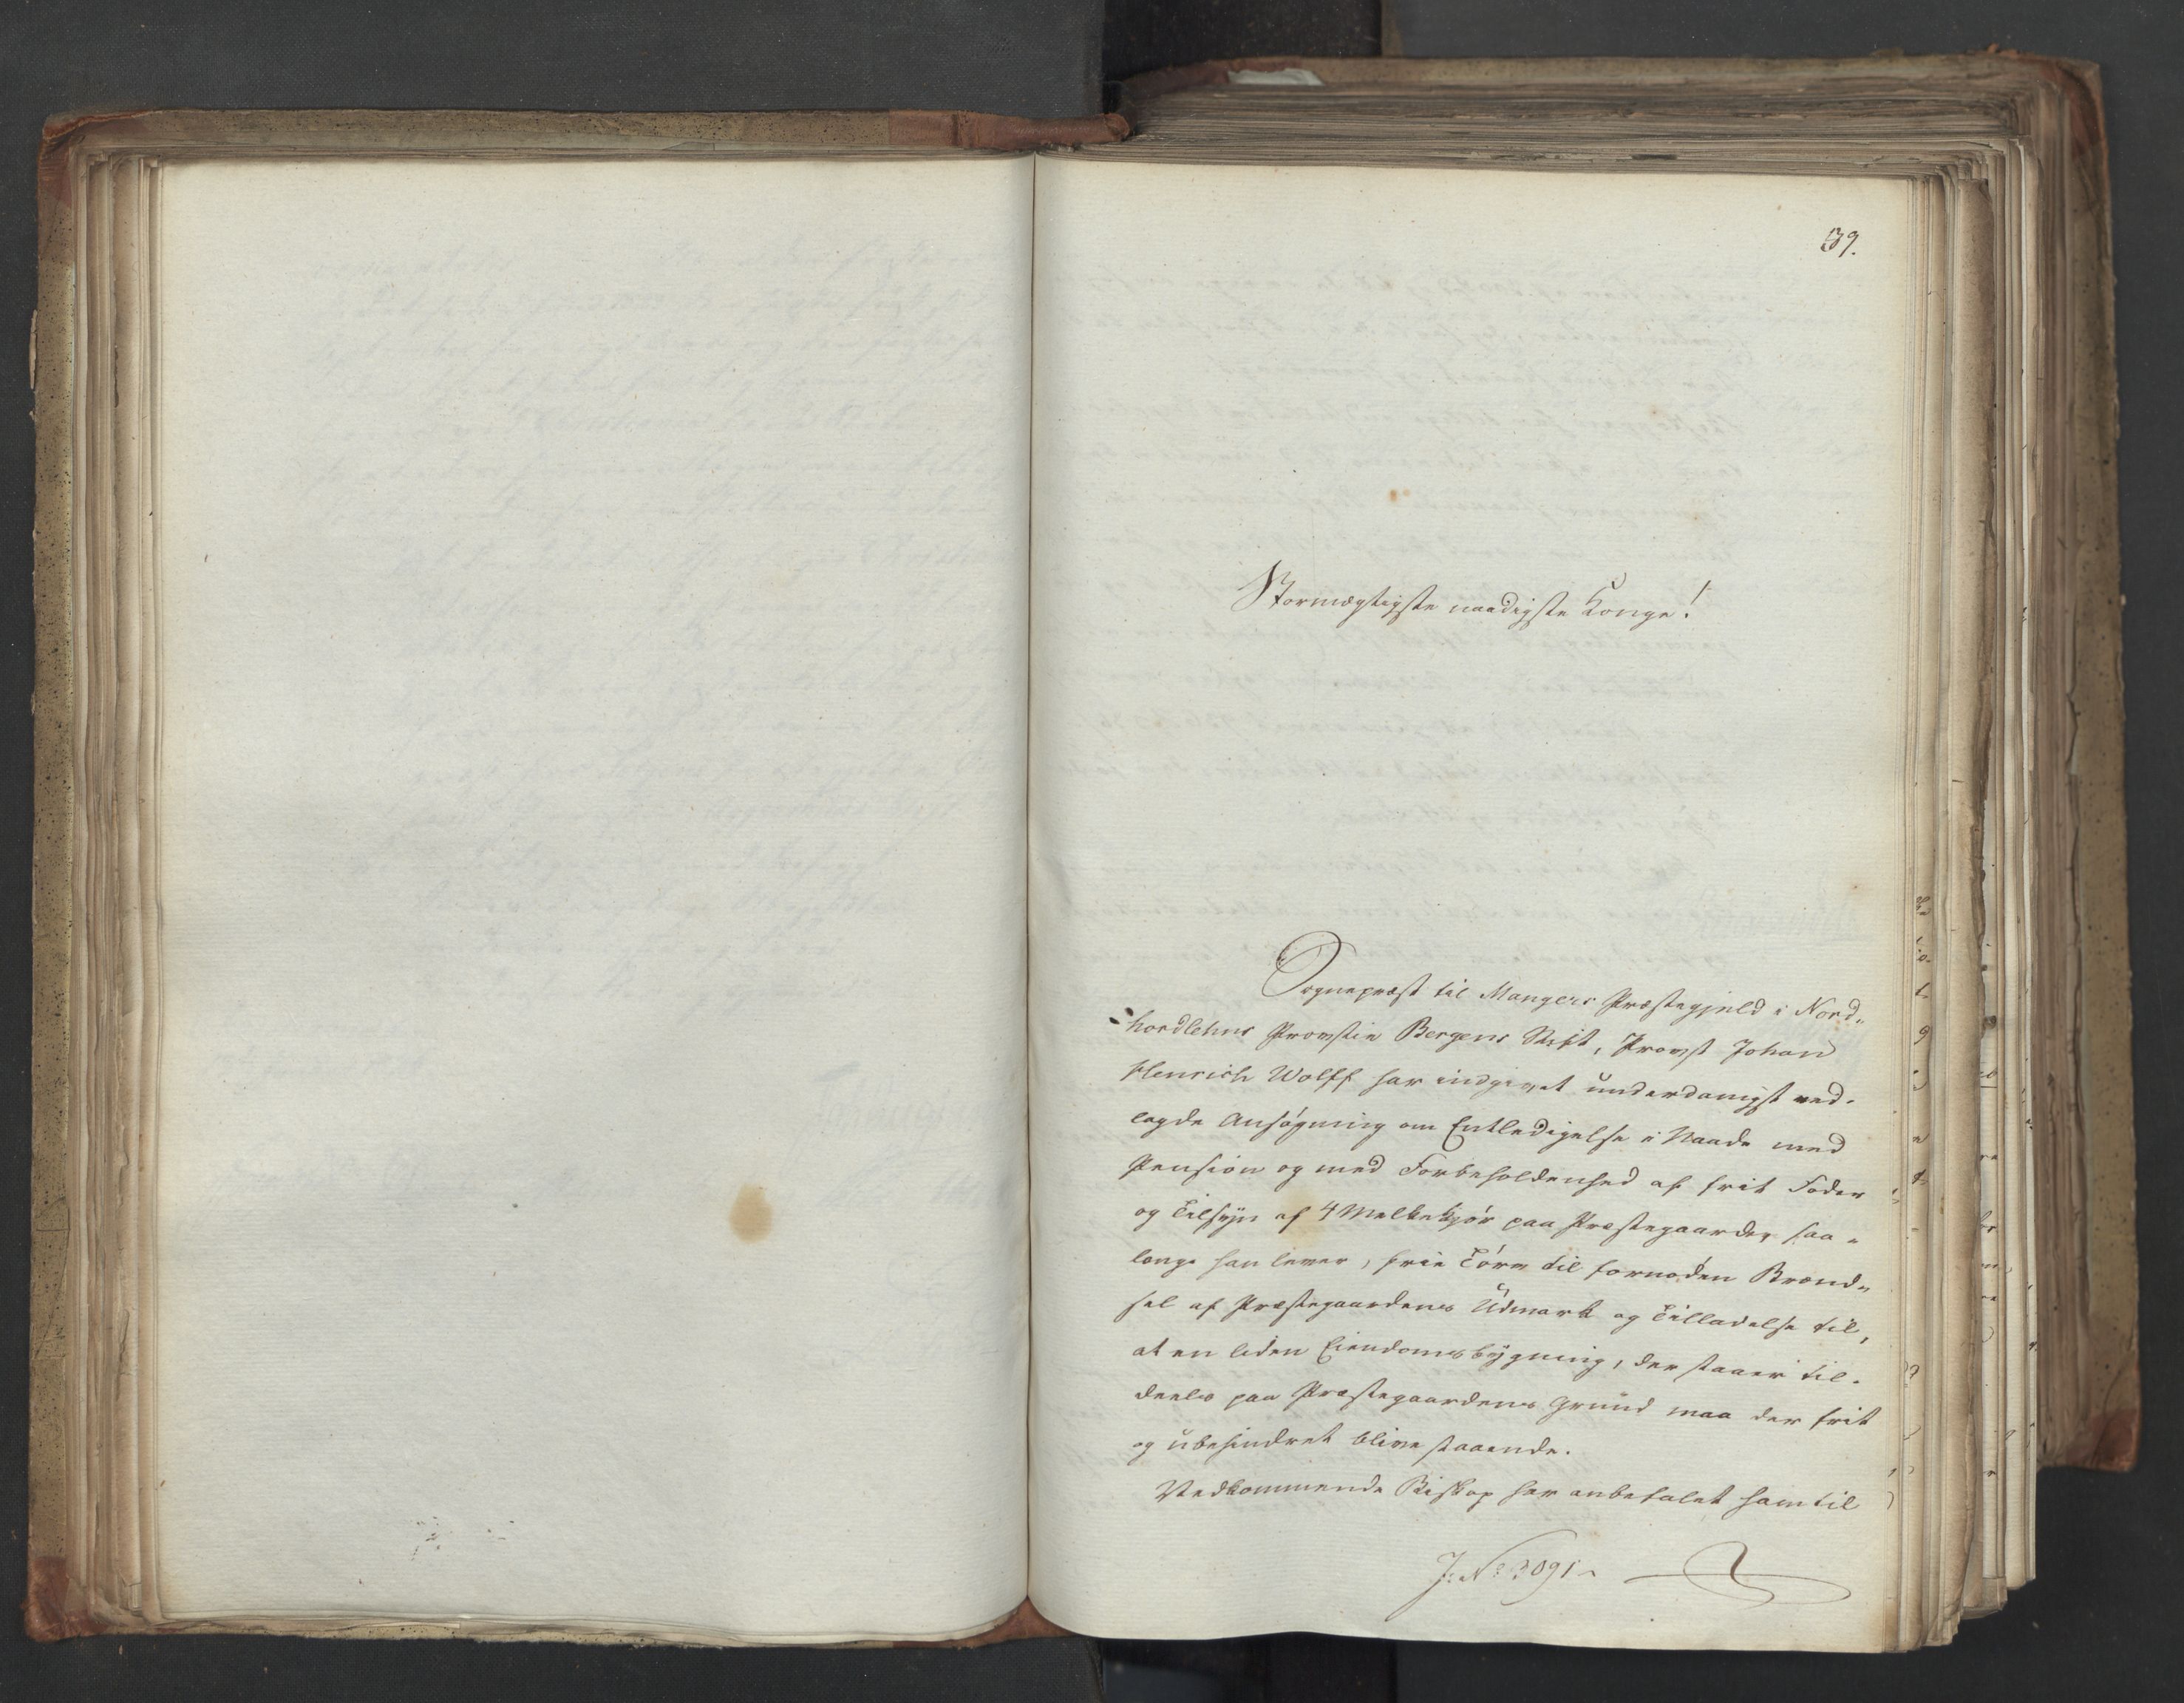 39.
Stormægtigste naadigste Konge!
Sognepræst til Mangers Præstegjeld i Nord-
hordlehns Provstie Bergens Stift, Provst Johan
Henrich Wolff har indgivet underdanigst ved-
lagde Ansøgning om Entledigelse i Naade med
Pension og med Forbeholdenhed af frit Foder
og Tilsyn af 4 Melkekjør paa Præstegaarden saa-
længe han lever, frie Tørv til fornøden Brænd-
sel af Præstegaardens Udmark og Tilladelse til,
at en liden Eiendomsbygning, der staaer til-
deels paa Præstegaardens Grund maa der frit
og ubehindret blive staaende.
Vedkommende Biskop har anbefalet ham til
J: No 3091